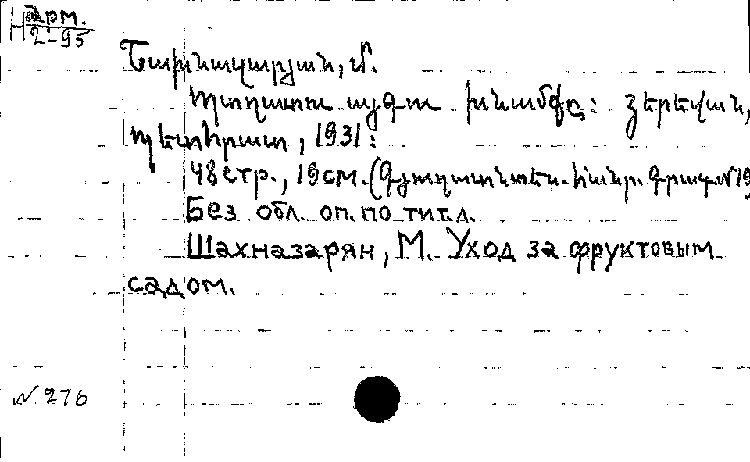 Н Арм.
2-95
Շախնազարյան, Մ.
Պտղատու այգու խնամքը: Յերեվան,
Պետհրատ, 1931:
48 стр., 19 см. (Գյուղատնտես. հանր. գրադ. N 19
Без обл. оп. по тит. л.
Шахназарян, М. Уход за фруктовым
садом.
N. 276